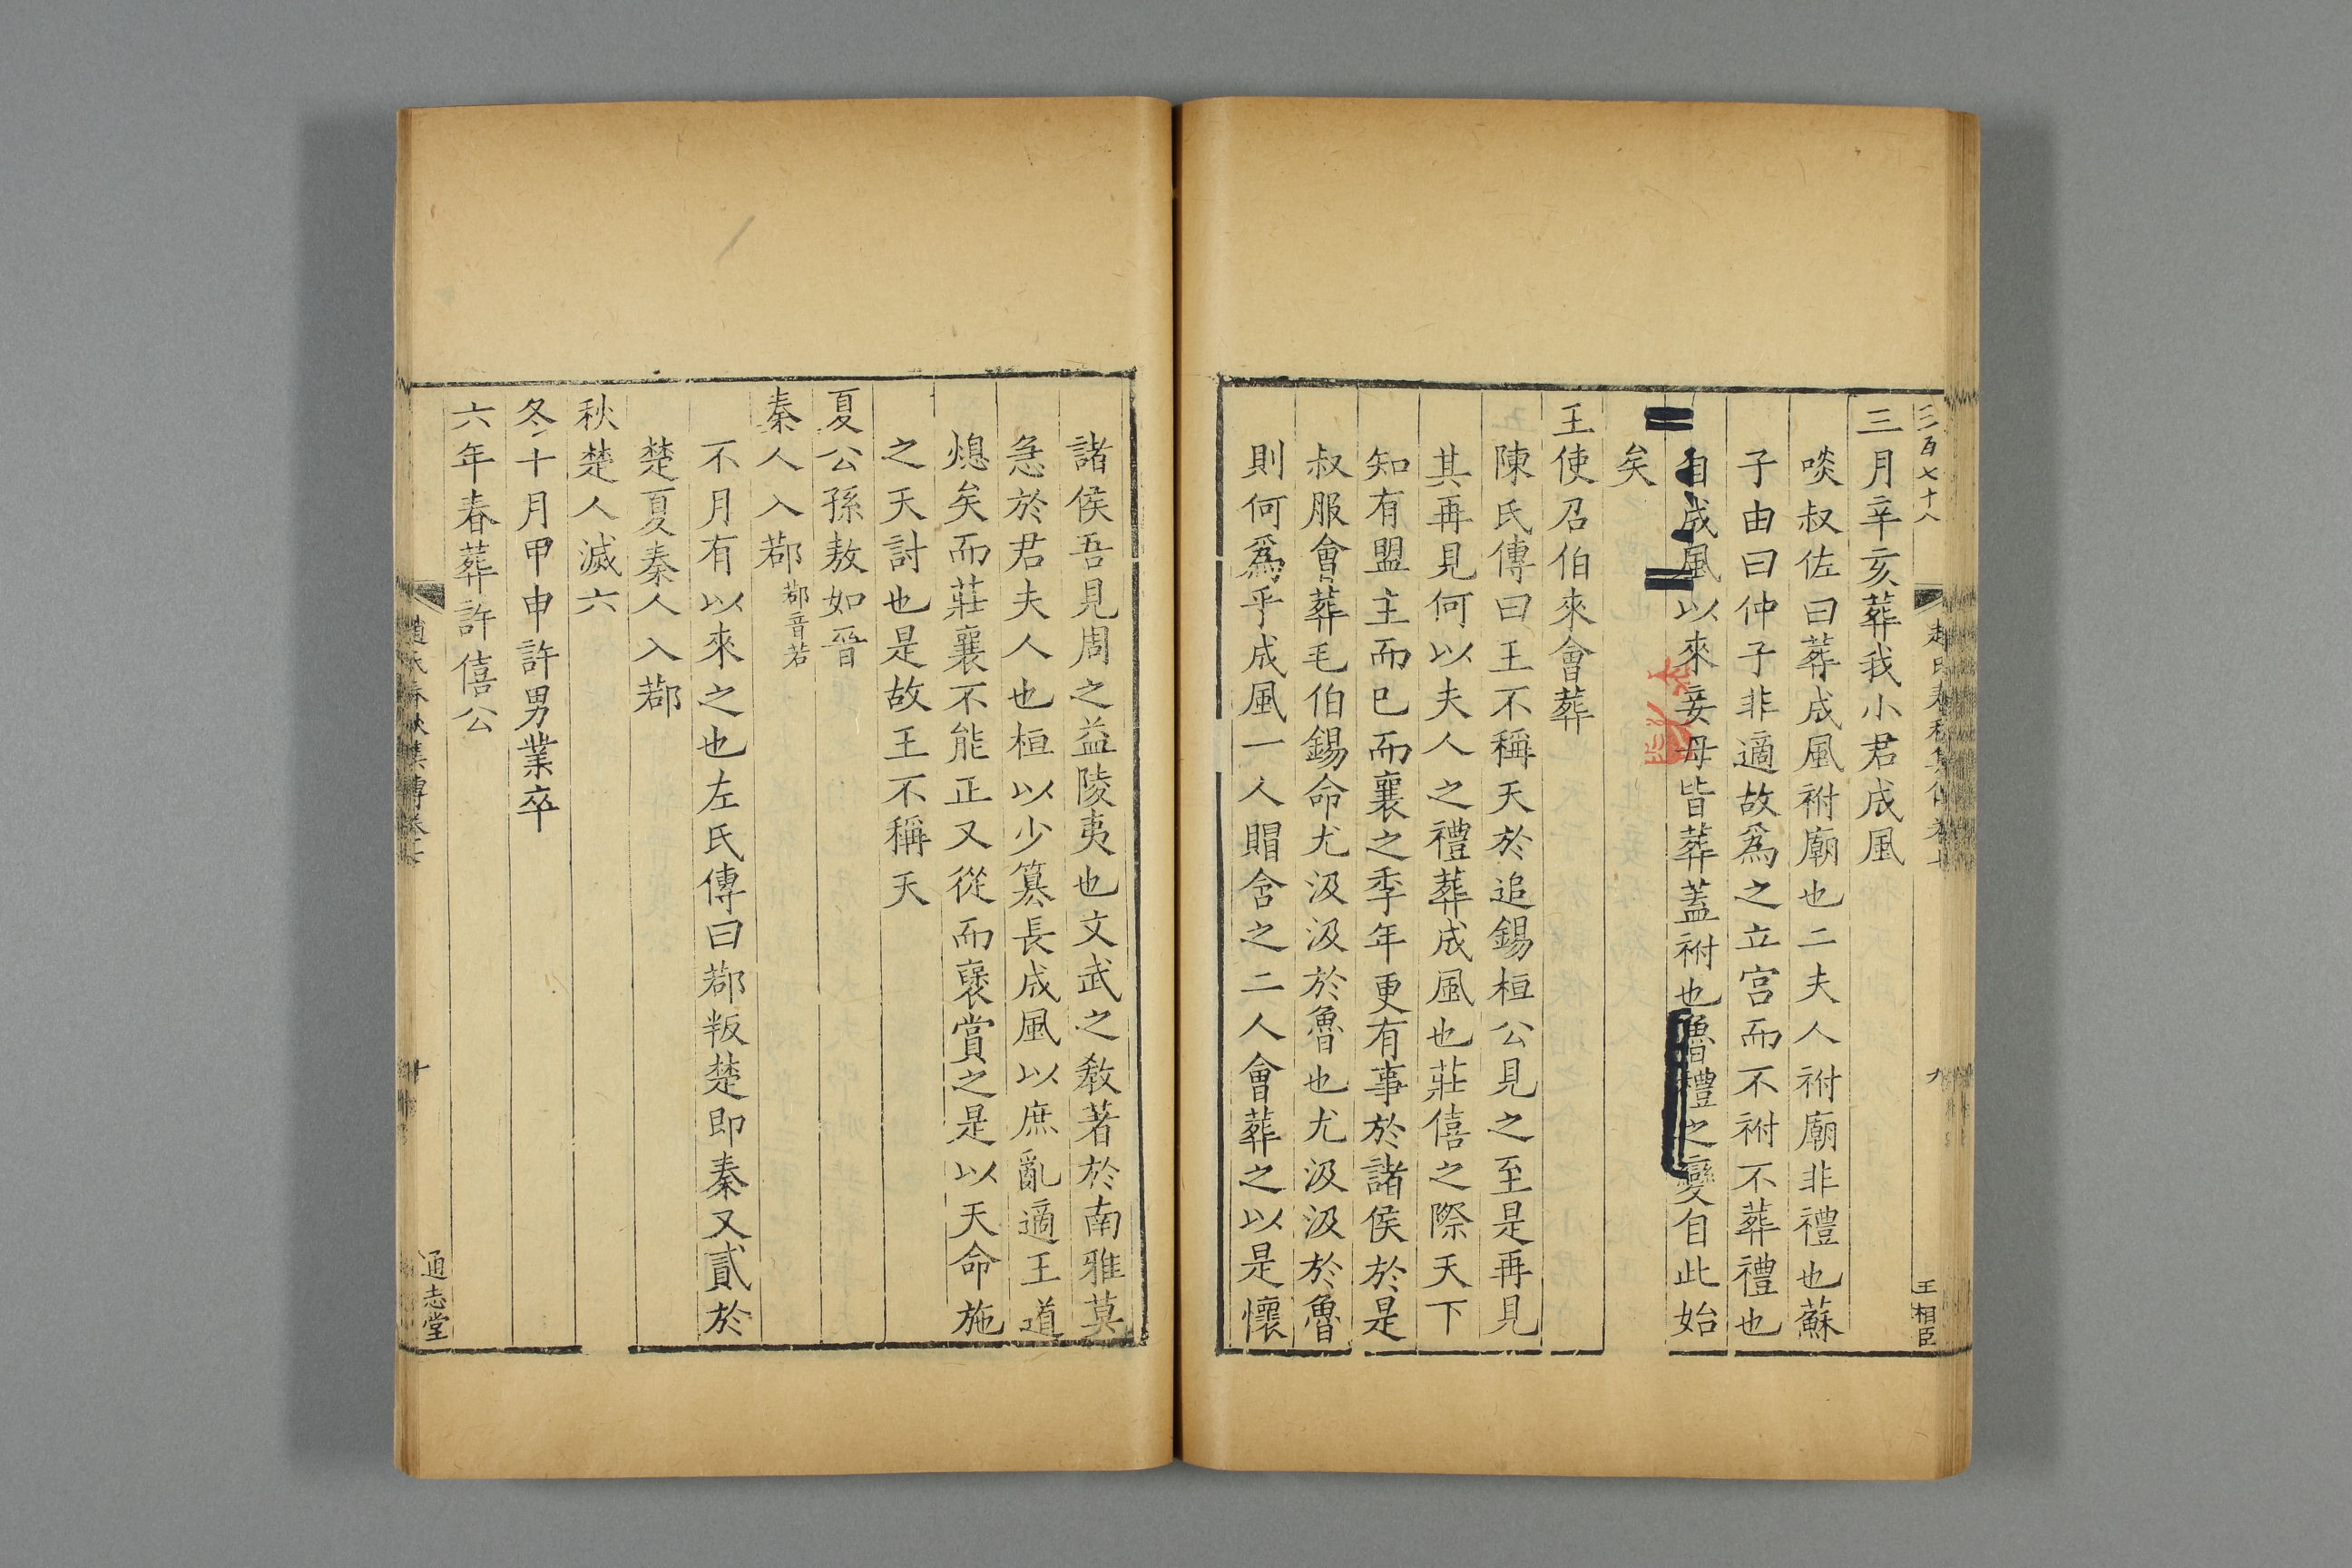 三百七十八
九
王相臣
三月辛亥葬我小君成風
啖叔佐曰葬成風祔廟也二夫人祔廟非禮也蘇
子由曰仲子非適故爲之立宫而不祔不葬禮也
自成風以來妾母皆葬蓋祔也魯禮之變自此始
矣
王使召伯來會葬
陳氏傳曰王不稱天於追錫桓公見之至是再見
其再見何以夫人之禮葬成風也莊僖之際天下
知有盟主而已而襄之季年更有事於諸侯於是
叔服會葬毛伯錫命尤汲汲於魯也尤汲汲於魯
則何爲乎成風一人賵含之二人會葬之以是懷
諸侯吾見周之益陵夷也文武之敎著於南雅莫
急於君夫人也桓以少簒長成風以庶亂適王道
熄矣而莊襄不能正又從而襃賞之是以天命施
之天討也是故王不稱天
夏公孫敖如晉
秦人入鄀鄀音若
不月有以來之也左氏傳曰鄀叛楚即秦又貳於
楚夏秦人入鄀
秋楚人滅六
冬十月甲申許男業卒
六年春葬許僖公
趙氏春秋集傳卷
十
通志堂